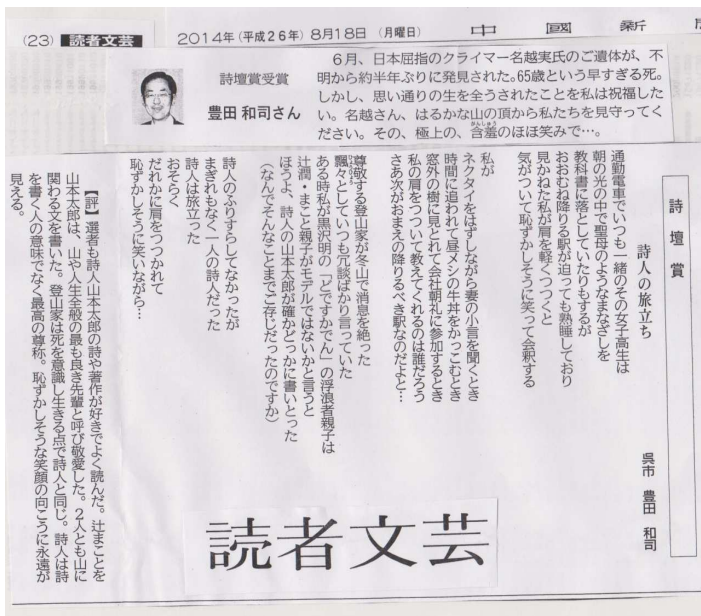 (23) 読者文芸
2014年(平成26年)8月18日(月曜日)
中國新
詩壇賞受賞
豊田 和司さん
6月、日本屈指のクライマー名越実氏のご遺体が、不
明から約半年ぶりに発見された。65歳という早すぎる死。
しかし、思い通りの生を全うされたことを私は祝福した
い。名越さん、はるかな山の頂から私たちを見守ってく
ださい。その、極上の、含羞のほほ笑みで…。
がんしゅう
詩壇賞
詩人の旅立ち
呉市 豊田 和司
通勤電車でいつも一緒のその女子高生は
朝の光の中で聖母のようなまなざしを
教科書に落としていたりもするが
おおむね降りる駅が迫っても熟睡しており
見かねた私が肩を軽くつつくと
気がついて恥ずかしそうに笑って会釈する
私が
ネクタイをはずしながら妻の小言を聞くとき
時間に追われて昼メシの牛丼をかっこむとき
窓外の樹に見とれて会社朝礼に参加するとき
私の肩をつついて教えてくれるのは誰だろう
さあ次がおまえの降りるべき駅なのだよと…
尊敬する登山家が冬山で消息を絶った
飄々としていつも冗談ばかり言っていた
ある時私が黒沢明の「どですかでん」の浮浪者親子は
辻潤・まこと親子がモデルではないかと言うと
ほうよ、詩人の山本太郎が確かどっかに書いとった
(なんでそんなことまでご存じだったのですか)
詩人のふりすらしてなかったが
まぎれもなく一人の詩人だった
詩人は旅立った
おそらく
だれかに肩をつつかれて
恥ずかしそうに笑いながら…
【評】選者も詩人山本太郎の詩や著作が好きでよく読んだ。辻まことを
山本太郎は、山や人生全般の最も良き先輩と呼び敬愛した。2人とも山に
関わる文を書いた。登山家は死を意識し生きる点で詩人と同じ。詩人は詩
を書く人の意味でなく最高の尊称。恥ずかしそうな笑顔の向こうに永遠が
見える。
読者文芸